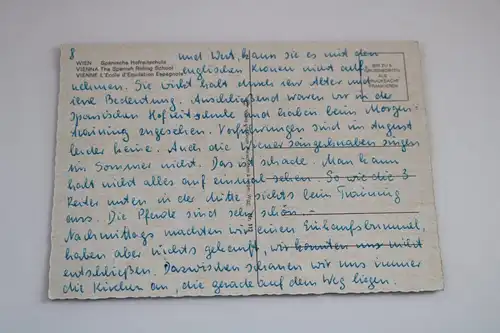 8
WIEN Spanische Hofreitschule
VIENNA The Spanish Riding School
VIENNE L'Ecole d'Equitation Espagnole
BIS ZU 5
GRUSSWORTEN
ALS
DRUCKSACHE
FRANKIEREN
und Wert, kann sie es mit den
englischen Kronen nicht auf-
nehmen. Sie wirkt halt durch ihr Alter und
ihre Bedeutung. Anschließend waren wir in der
Spanischen Hofreitschule und haben beim Morgen-
training zugesehen. Vorführungen sind im August
leider keine. Auch die Wiener Sängerknaben singen
im Sommer nicht. Das ist schade. Man kann
halt nicht alles auf einmal sehen. So wie die 3
Reiter unten in der Mitte sichts beim Training
aus. Die Pferde sind sehr schön. -
Nachmittags machten wir einen Einkaufsbummel,
haben aber nichts gekauft, wir konnten uns nicht
entschließen. Dazwischen schauen wir uns immer
die Kirchen an, die gerade auf dem Weg liegen.